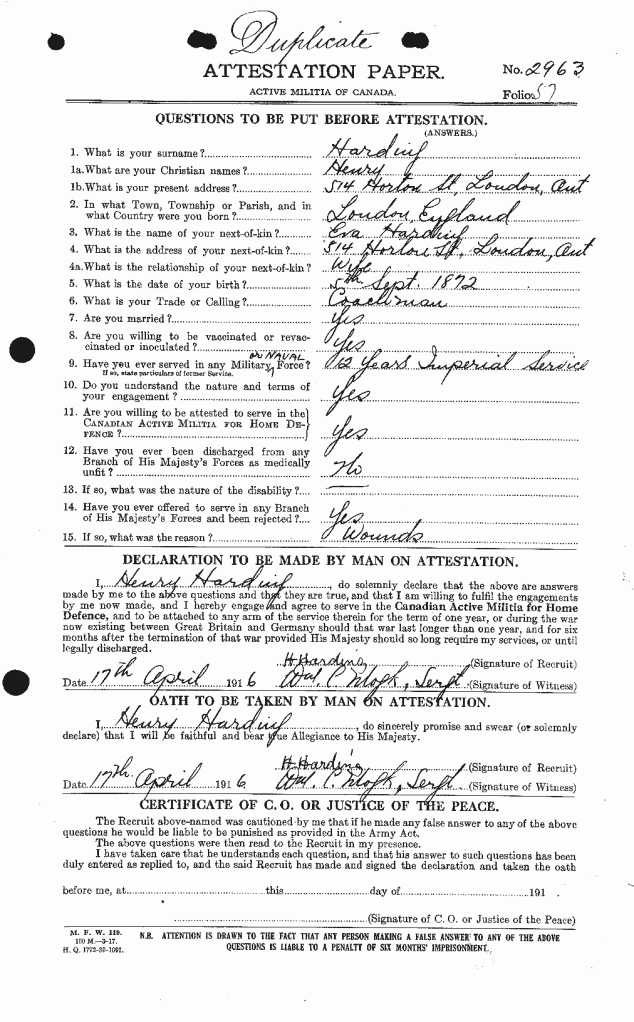 Duplicate
ATTESTATION PAPER.
No. 2963
ACTIVE MILITIA OF CANADA.
Folio. 57
QUESTIONS TO BE PUT BEFORE ATTESTATION.
(ANSWERS.)
1. What is your surname?... Harding
1a. What are your Christian names?... Henry
1b. What is your present address?... 514 Horton St, London, Ont
2. In what Town, Township or Parish, and in
what Country were you born?... London, England
3. What is the name of your next-of-kin?... Eva Harding
4. What is the address of your next-of-kin?... 514 Horton St, London, Ont
4a. What is the relationship of your next-of-kin? Wife
5. What is the date of your birth?... 5th Sept. 1872
6. What is your Trade or Calling?... Coachman
7. Are you married?... Yes
8. Are you willing to be vaccinated or revac-
cinated or inoculated?... Yes
or NAVAL
9. Have you ever served in any Military Force? 12 Years Imperial Service
If so, state particulars of former Service.
10. Do you understand the nature and terms of
your engagement?... Yes
11. Are you willing to be attested to serve in the
CANADIAN ACTIVE MILITIA FOR HOME DE-
FENCE?... Yes
12. Have you ever been discharged from any
Branch of His Majesty's Forces as medically
unfit?... No
13. If so, what was the nature of the disability?... —
14. Have you ever offered to serve in any Branch
of His Majesty's Forces and been rejected?... Yes
15. If so, what was the reason?... Wounds
DECLARATION TO BE MADE BY MAN ON ATTESTATION.
I, Henry Harding, do solemnly declare that the above are answers
made by me to the above questions and that they are true, and that I am willing to fulfil the engagements
by me now made, and I hereby engage and agree to serve in the Canadian Active Militia for Home
Defence, and to be attached to any arm of the service therein for the term of one year, or during the war
now existing between Great Britain and Germany should that war last longer than one year, and for six
months after the termination of that war provided His Majesty should so long require my services, or until
legally discharged.
H Harding (Signature of Recruit)
Date 17th April 1916 Sergt (Signature of Witness)
OATH TO BE TAKEN BY MAN ON ATTESTATION.
I, Henry Harding, do sincerely promise and swear (or solemnly
declare) that I will be faithful and bear true Allegiance to His Majesty.
H Harding (Signature of Recruit)
Date 17th April 1916 Sergt (Signature of Witness)
CERTIFICATE OF C. O. OR JUSTICE OF THE PEACE.
The Recruit above-named was cautioned by me that if he made any false answer to any of the above
questions he would be liable to be punished as provided in the Army Act.
The above questions were then read to the Recruit in my presence.
I have taken care that he understands each question, and that his answer to such questions has been
duly entered as replied to, and the said Recruit has made and signed the declaration and taken the oath
before me, at... this... day of... 191 .
(Signature of C. O. or Justice of the Peace)
M. F. W. 110.
100 M.—3-17.
H. Q. 1772-39-1091.
N.B. ATTENTION IS DRAWN TO THE FACT THAT ANY PERSON MAKING A FALSE ANSWER TO ANY OF THE ABOVE
QUESTIONS IS LIABLE TO A PENALTY OF SIX MONTHS' IMPRISONMENT.